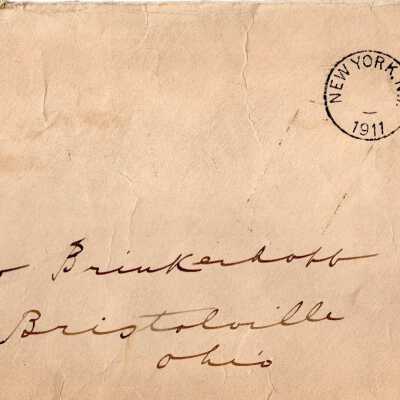 NEW YORK, N.
1911
Brinkerhoff
Bristolville
Ohio